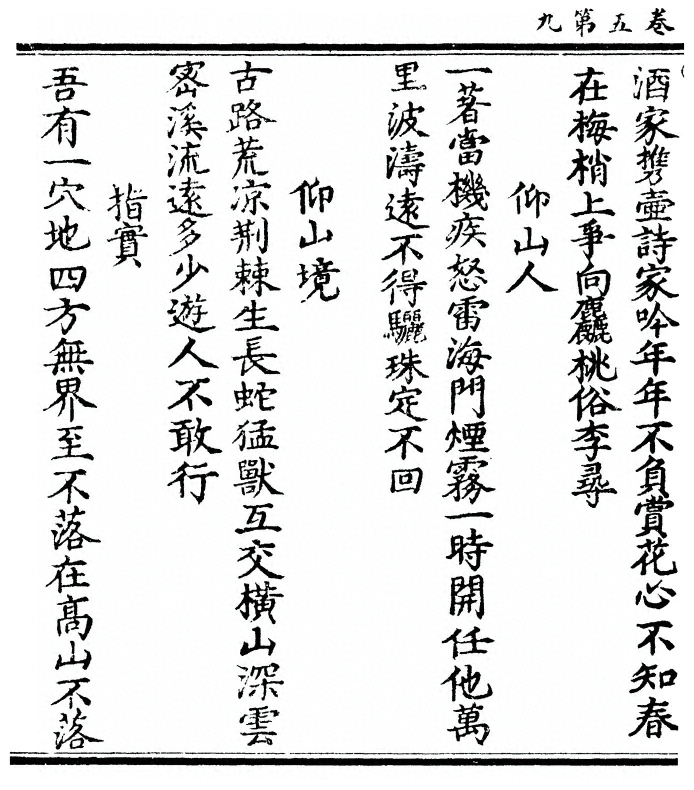 卷五第九
酒家携壷詩家吟年年不負賞花心不知春
在梅梢上爭向麤桃俗李尋
仰山人
一著當機疾怒雷海門煙霧一時開任他萬
里波濤遠不得驪珠定不回
仰山境
古路荒凉荆棘生長蛇猛獸互交橫山深雲
宻溪流遠多少遊人不敢行
指實
吾有一穴地四方無界至不落在髙山不落